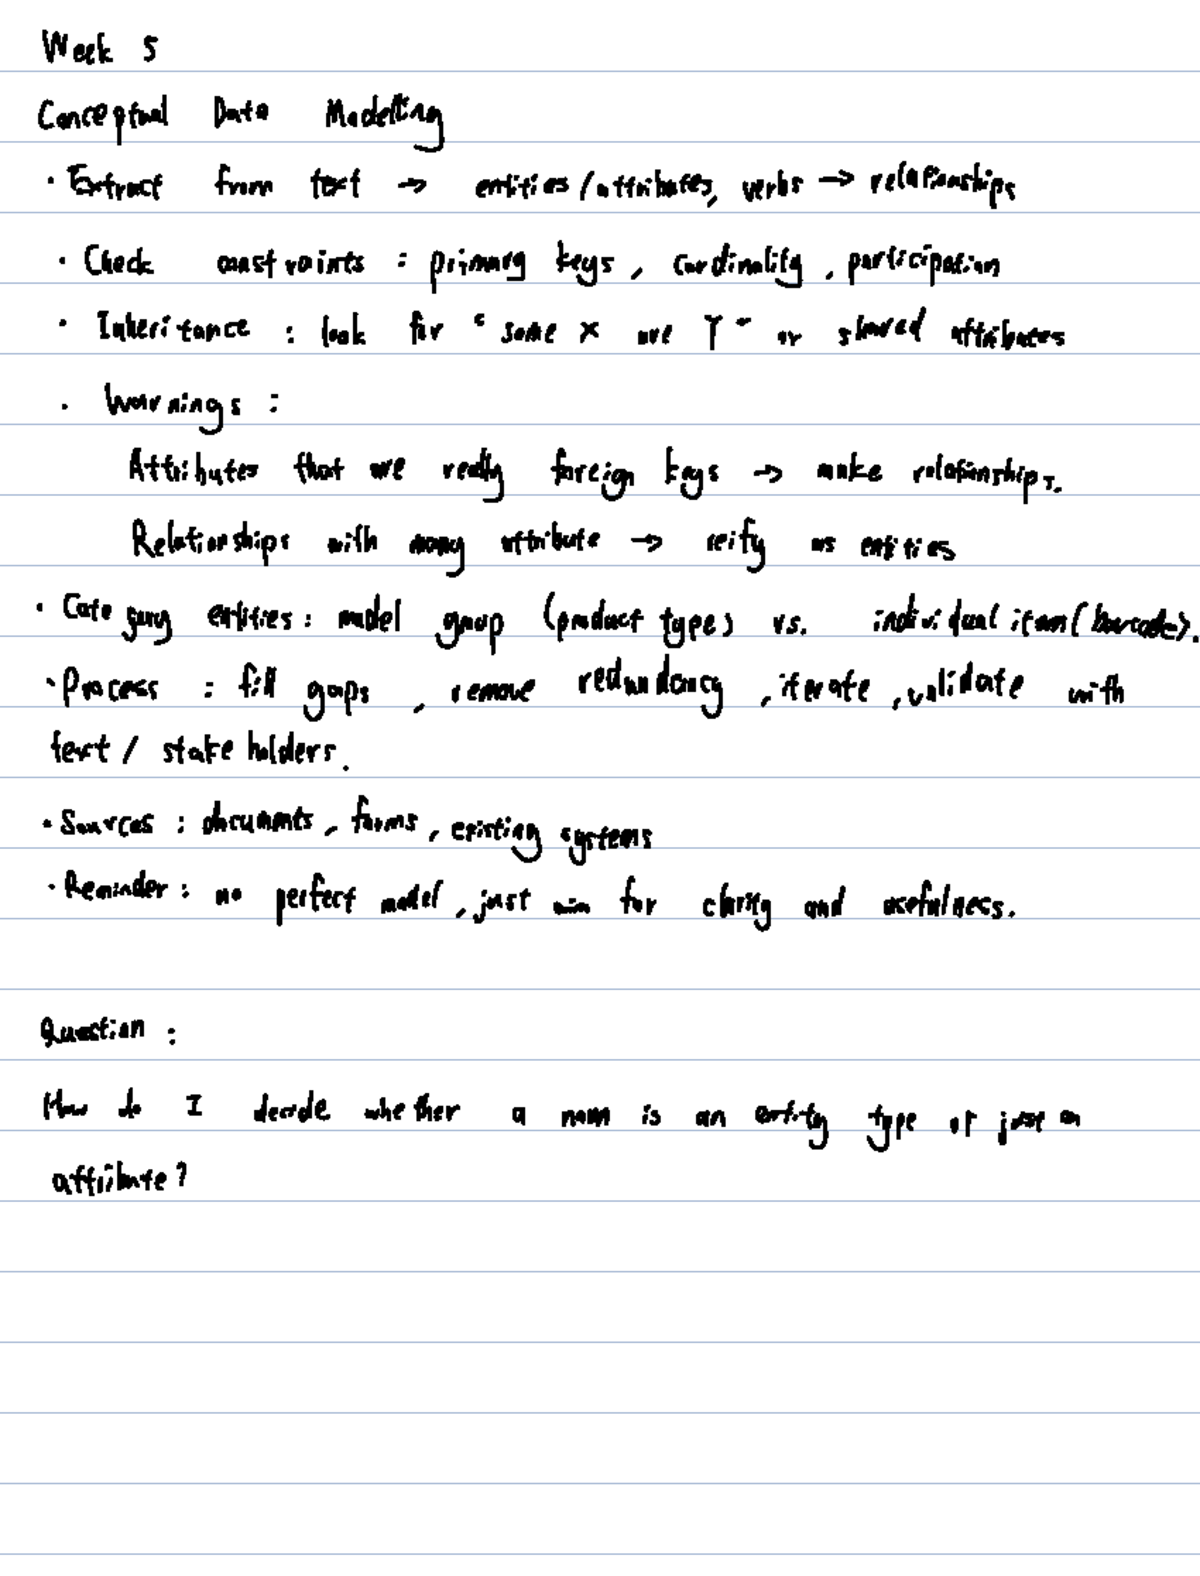 Week 5
Conceptual Data Modelling
· Extract from text → entities/attributes, verbs → relationships
· Check constraints : primary keys, cardinality, participation
· Inheritance : look for "some X are Y" or shared attributes
· Warnings :
Attributes that are really foreign keys → make relationships.
Relationships with many attribute → reify as entities
· Category entities: model group (product type) vs. individual item (barcode).
· Process : fill gaps, remove redundancy, iterate, validate with
text / stake holders.
· Sources : documents, forms, existing systems
· Reminder : no perfect model, just aim for clarity and usefulness.
Question :
How do I decide whether a noun is an entity type or just an
attribute?